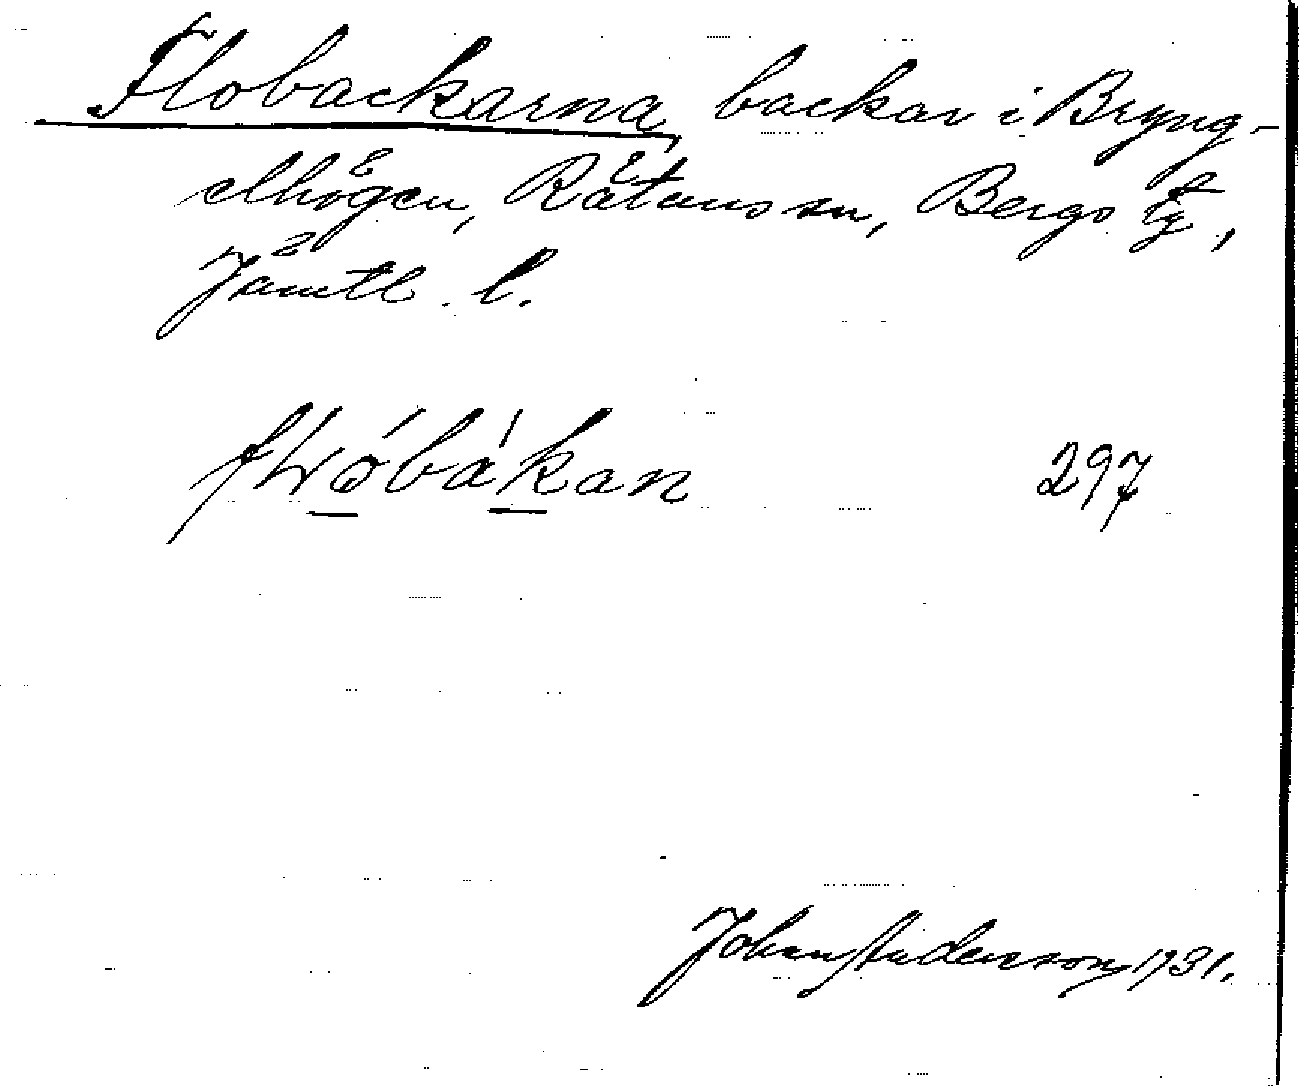 Flobackarna, backar i Bryng-
elhögen, Rätans sn, Bergs tg,
Jämtl. l.
297
Johan Anderson 1931.